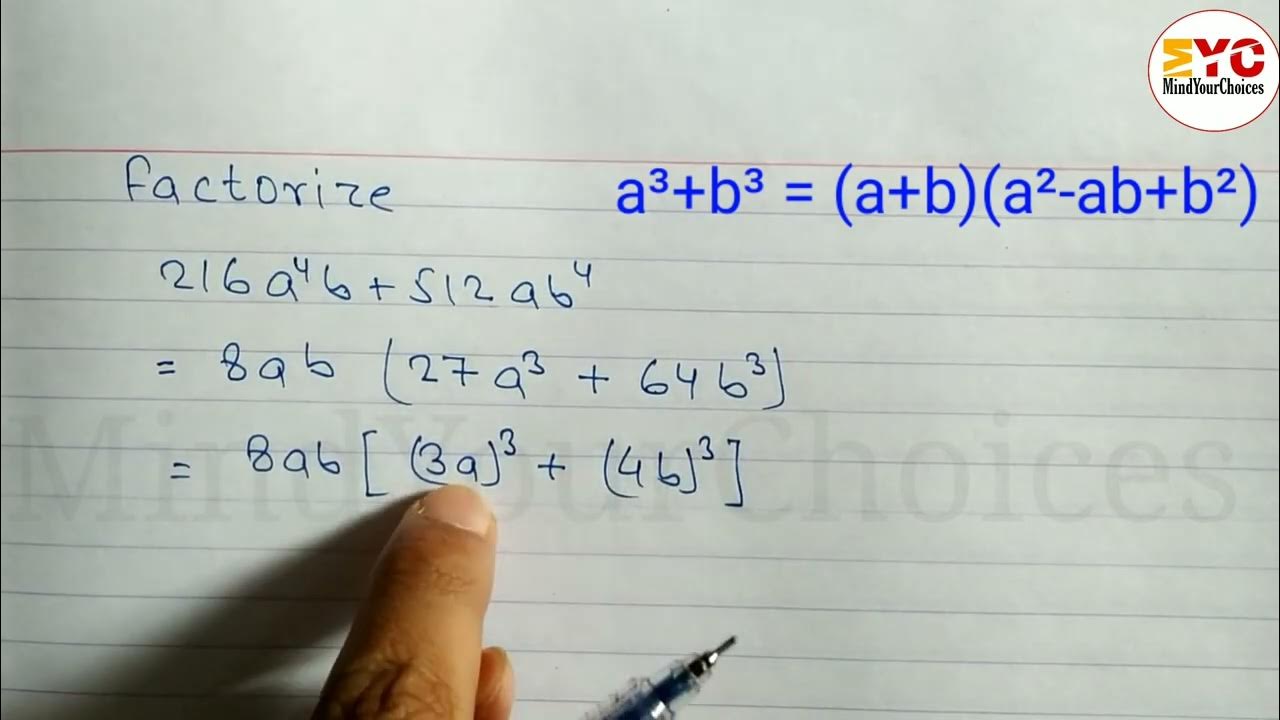 MYC
MindYourChoices
Factorize
a³+b³ = (a+b)(a²-ab+b²)
216a⁴b + 512ab⁴
= 8ab (27a³ + 64b³)
= 8ab [(3a)³ + (4b)³]
MindYourChoices